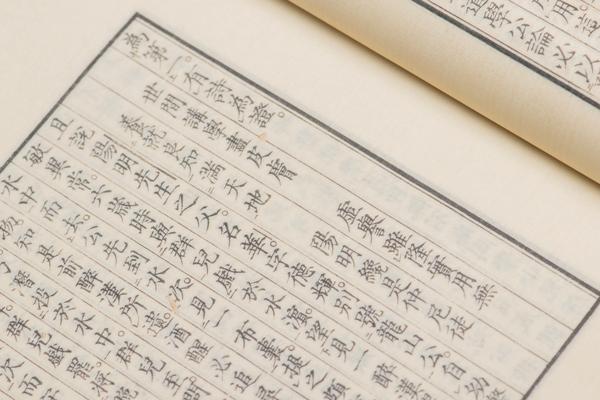 道學公論必以
為第一。有詩為證。
世間講學盡皮膚　虛譽雖隆實用無
養就良知滿天地　陽明纔是仲尼徒
且說陽明先生之父名華。字德輝。別號龍山公。自幼
敏異常。六歲時與群兒戲於水濱。望見一醉漢
水中而去。公先到水次。見一布囊。提之頗
物。知是前醉漢所遺。酒醒必追尋
潛投於水中。群兒至。問
群兒戲罷。將晚
次而